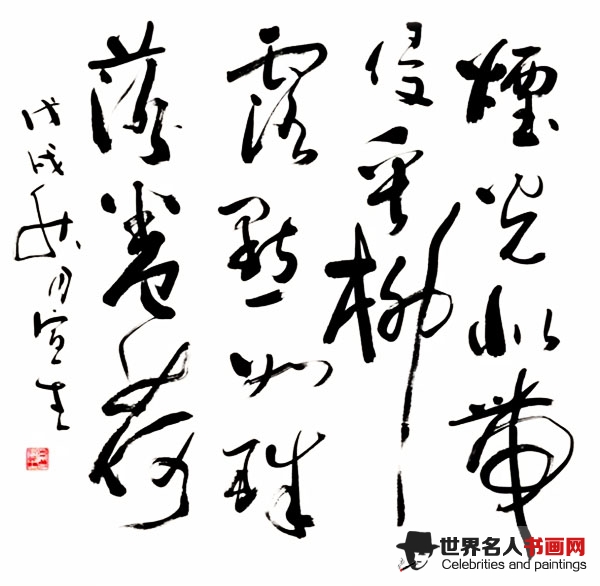 煙光似帶
侵垂柳
露點如珠
落卷荷
戊戌秋月宣生
世界名人书画网
Celebrities and paintings